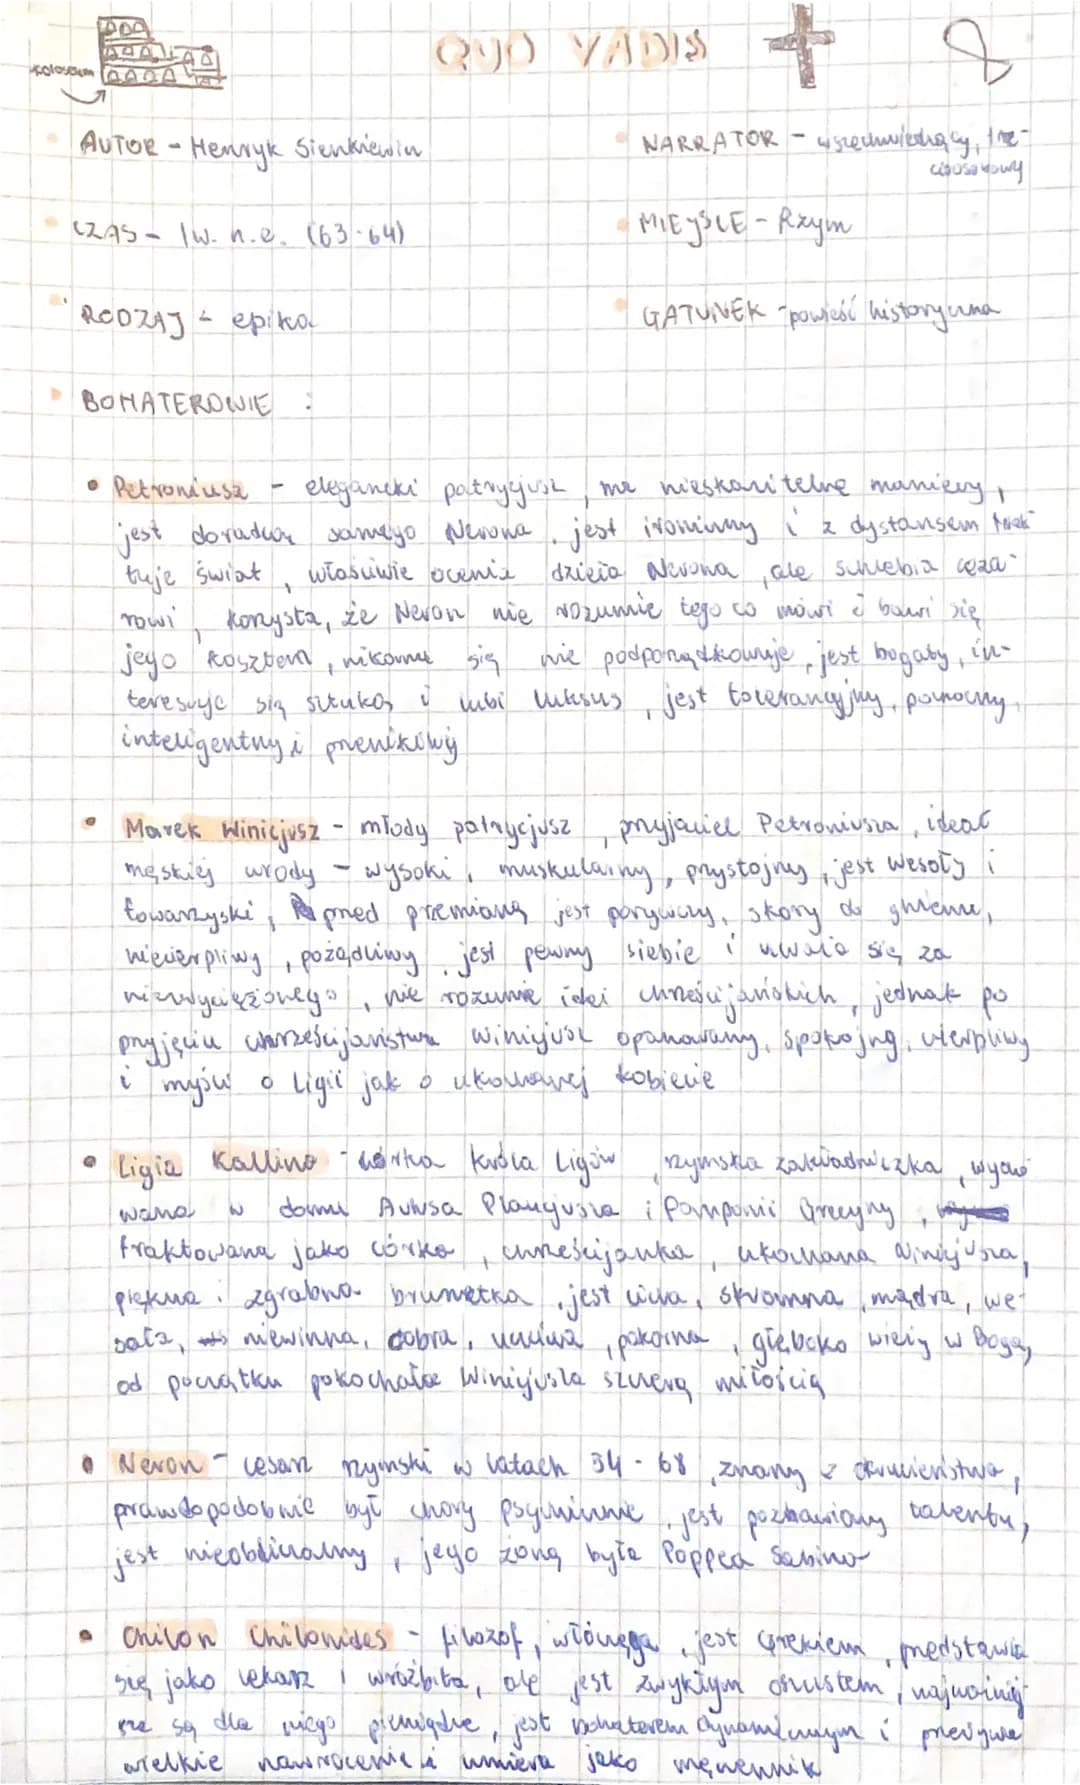 QUO VADIS
koloseum
AUTOR - Henryk Sienkiewicz
NARRATOR - wszechwiedzący, trze-
cioosobowy
CZAS - I w. n.e. (63-64)
MIEJSCE - Rzym
RODZAJ - epika
GATUNEK - powieść historyczna
BOHATEROWIE :
• Petroniusz - elegancki patrycjusz, ma nieskazitelne maniery,
jest doradcą samego Nerona, jest ironiczny i z dystansem trak-
tuje świat, właściwie ocenia dzieła Nerona, ale schlebia ceza-
rowi, korzysta, że Neron nie rozumie tego co mówi i bawi się
jego kosztem, nikomu się nie podporządkowuje, jest bogaty, in-
teresuje się sztuką i lubi luksus, jest tolerancyjny, pomocny,
inteligentny i przenikliwy
• Marek Winicjusz - młody patrycjusz, przyjaciel Petroniusza, ideał
męskiej urody - wysoki, muskularny, przystojny, jest wesoły i
towarzyski, przed przemianą jest porywczy, skory do gniewu,
niecierpliwy, pożądliwy, jest pewny siebie i uważa się za
niezwyciężonego, nie rozumie idei chrześcijańskich, jednak po
przyjęciu chrześcijaństwa Winicjusz opanowany, spokojny, cierpliwy
i myśli o Ligii jak o ukochanej kobiecie
• Ligia Kallina - córka króla Ligów, rzymska zakładniczka, wycho
wana w domu Aulusa Plaucjusza i Pomponii Grecyny,
traktowana jako córka, chrześcijanka, ukochana Winicjusza,
piękna i zgrabna brunetka, jest cicha, skromna, mądra, we-
soła, niewinna, dobra, uczciwa, pokorna, głęboko wierzy w Boga,
od początku pokochała Winicjusza szczerą miłością
• Neron - cesarz rzymski w latach 54 - 68, znany z okrucieństwa,
prawdopodobnie był chory psychicznie, jest pozbawiony talentu,
jest nieobliczalny, jego żoną była Poppea Sabina
• Chilon Chilonides - filozof, włóczęga, jest Grekiem, przedstawia
się jako lekarz i wróżbita, ale jest zwykłym oszustem, najważniej-
sze są dla niego pieniądze, jest bohaterem dynamicznym i przeżywa
wielkie nawrócenie i umiera jako męczennik